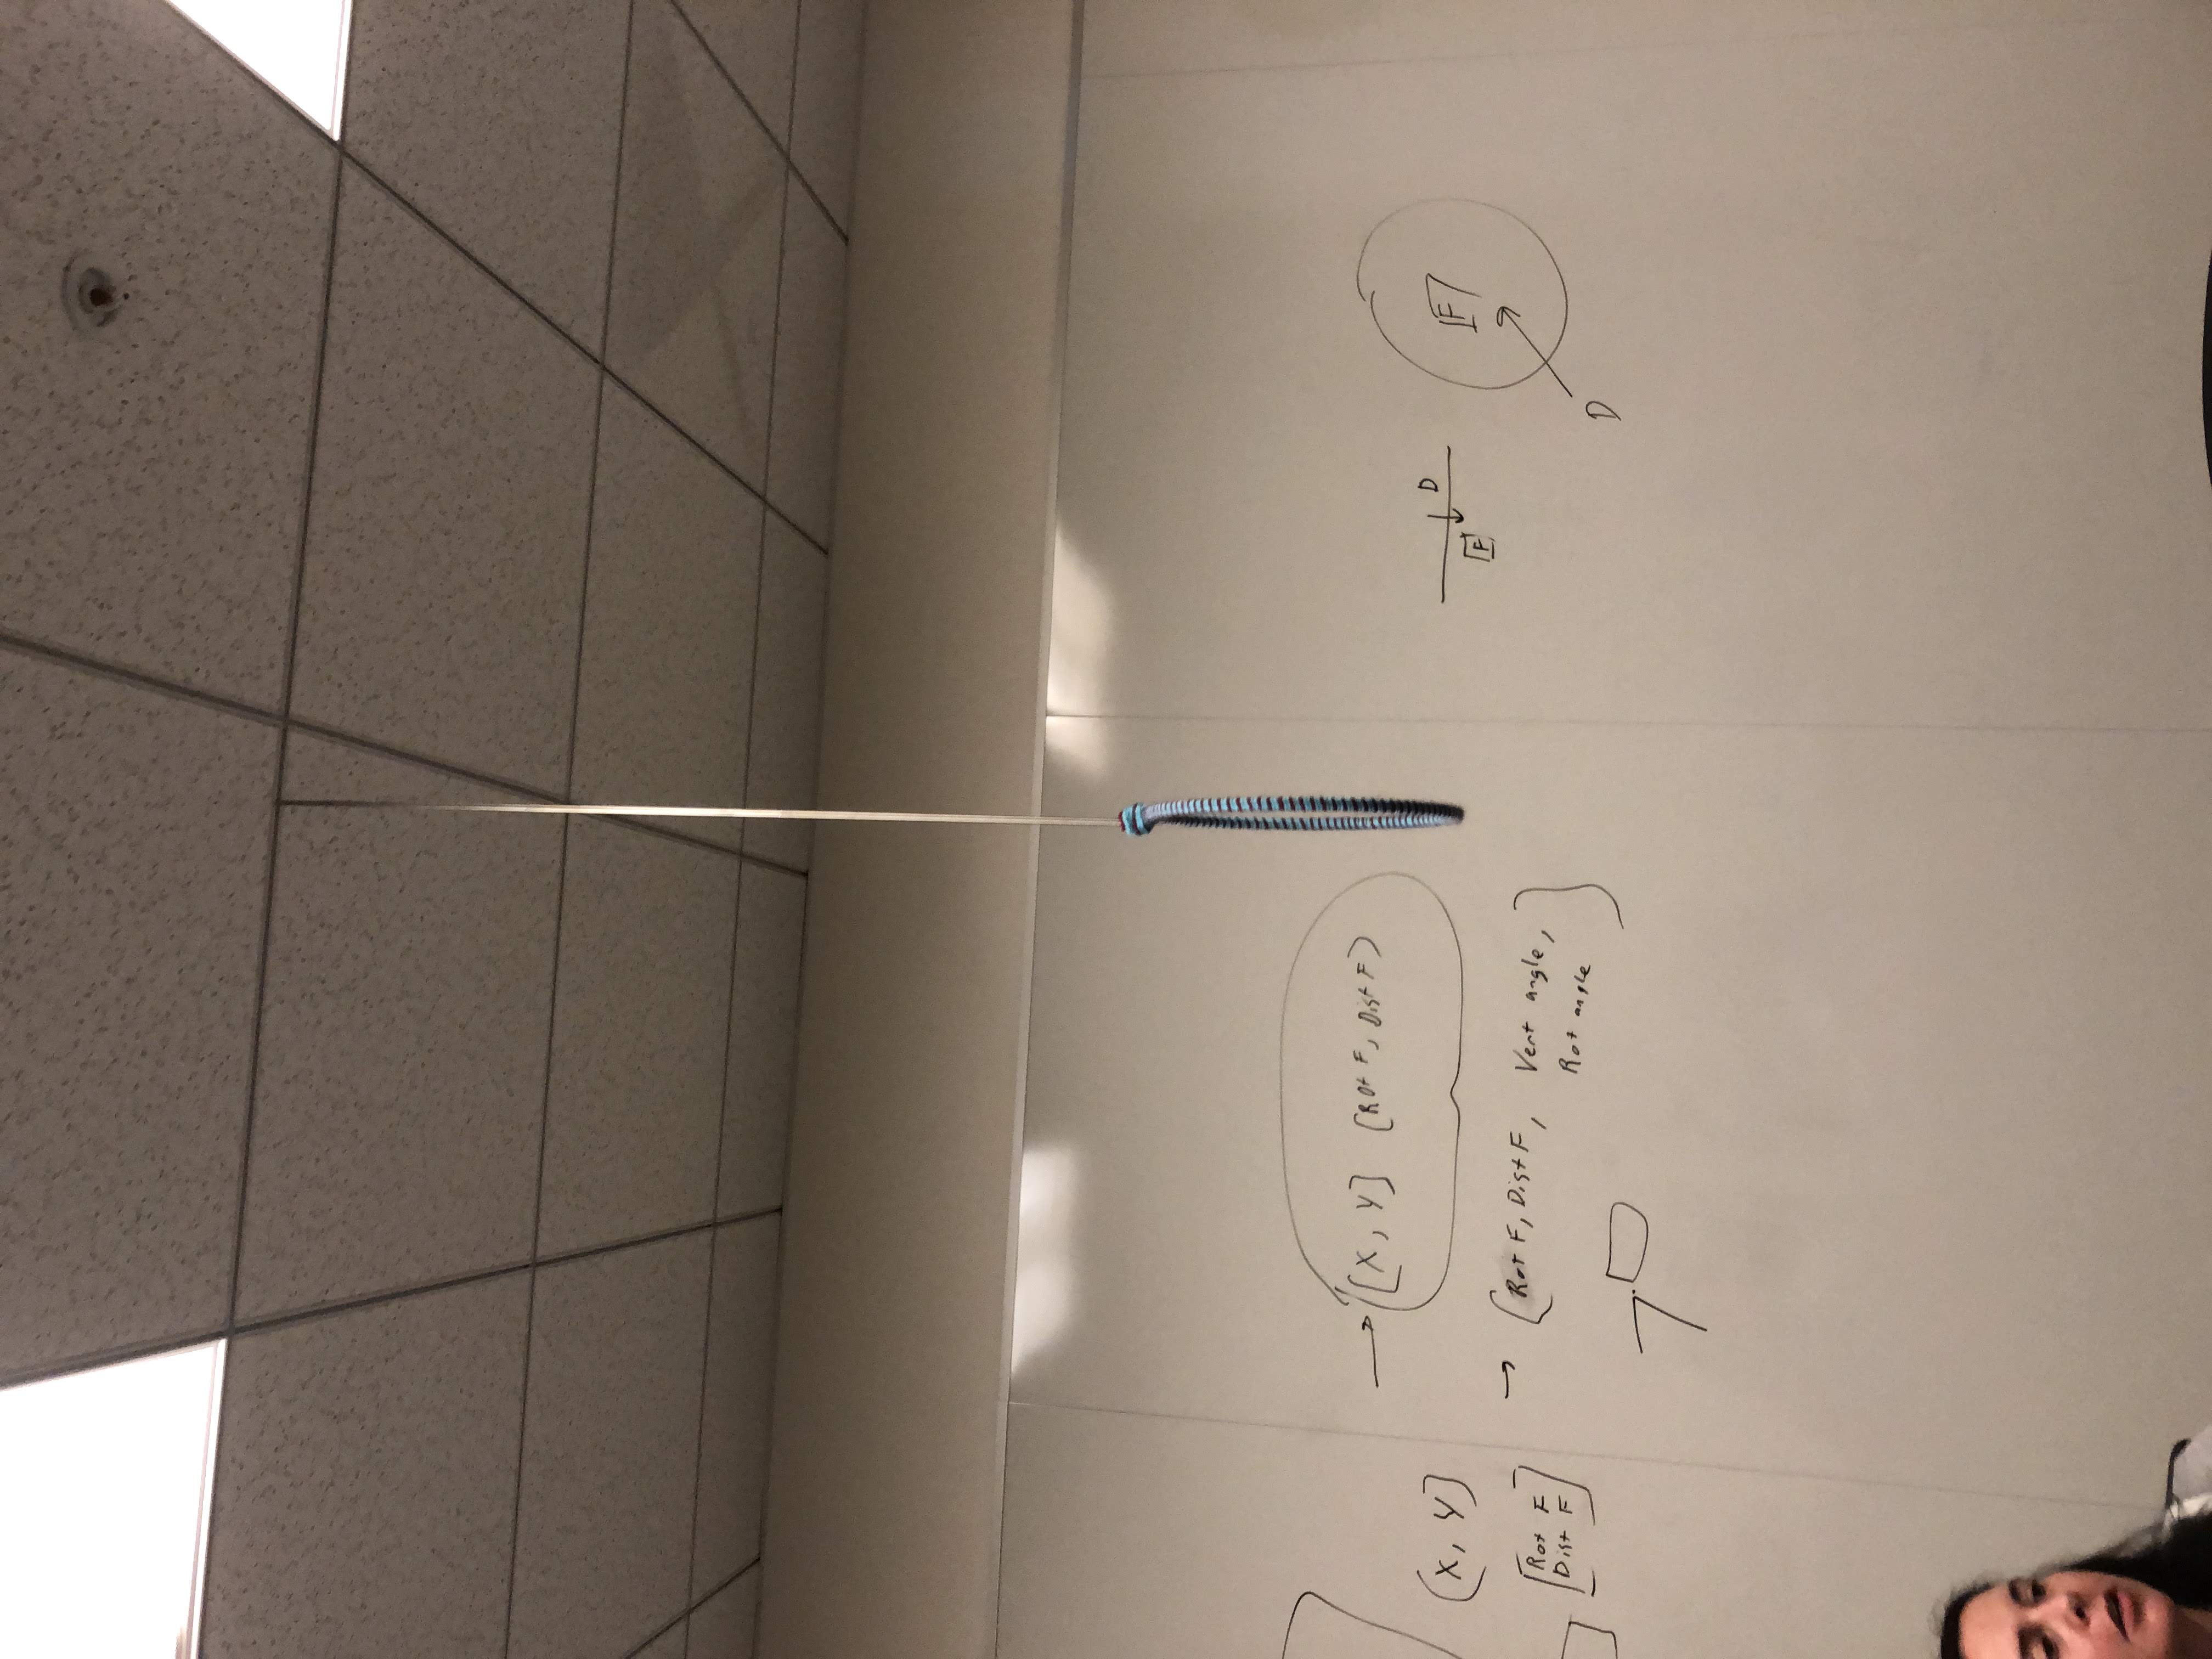 (X, Y]
[Rot F
Dist F]
→ [X, Y] (Rot F, Dist F)
→ (Rot F, Dist F, Vert angle,
Rot angle)
D
[F]
[F]
D